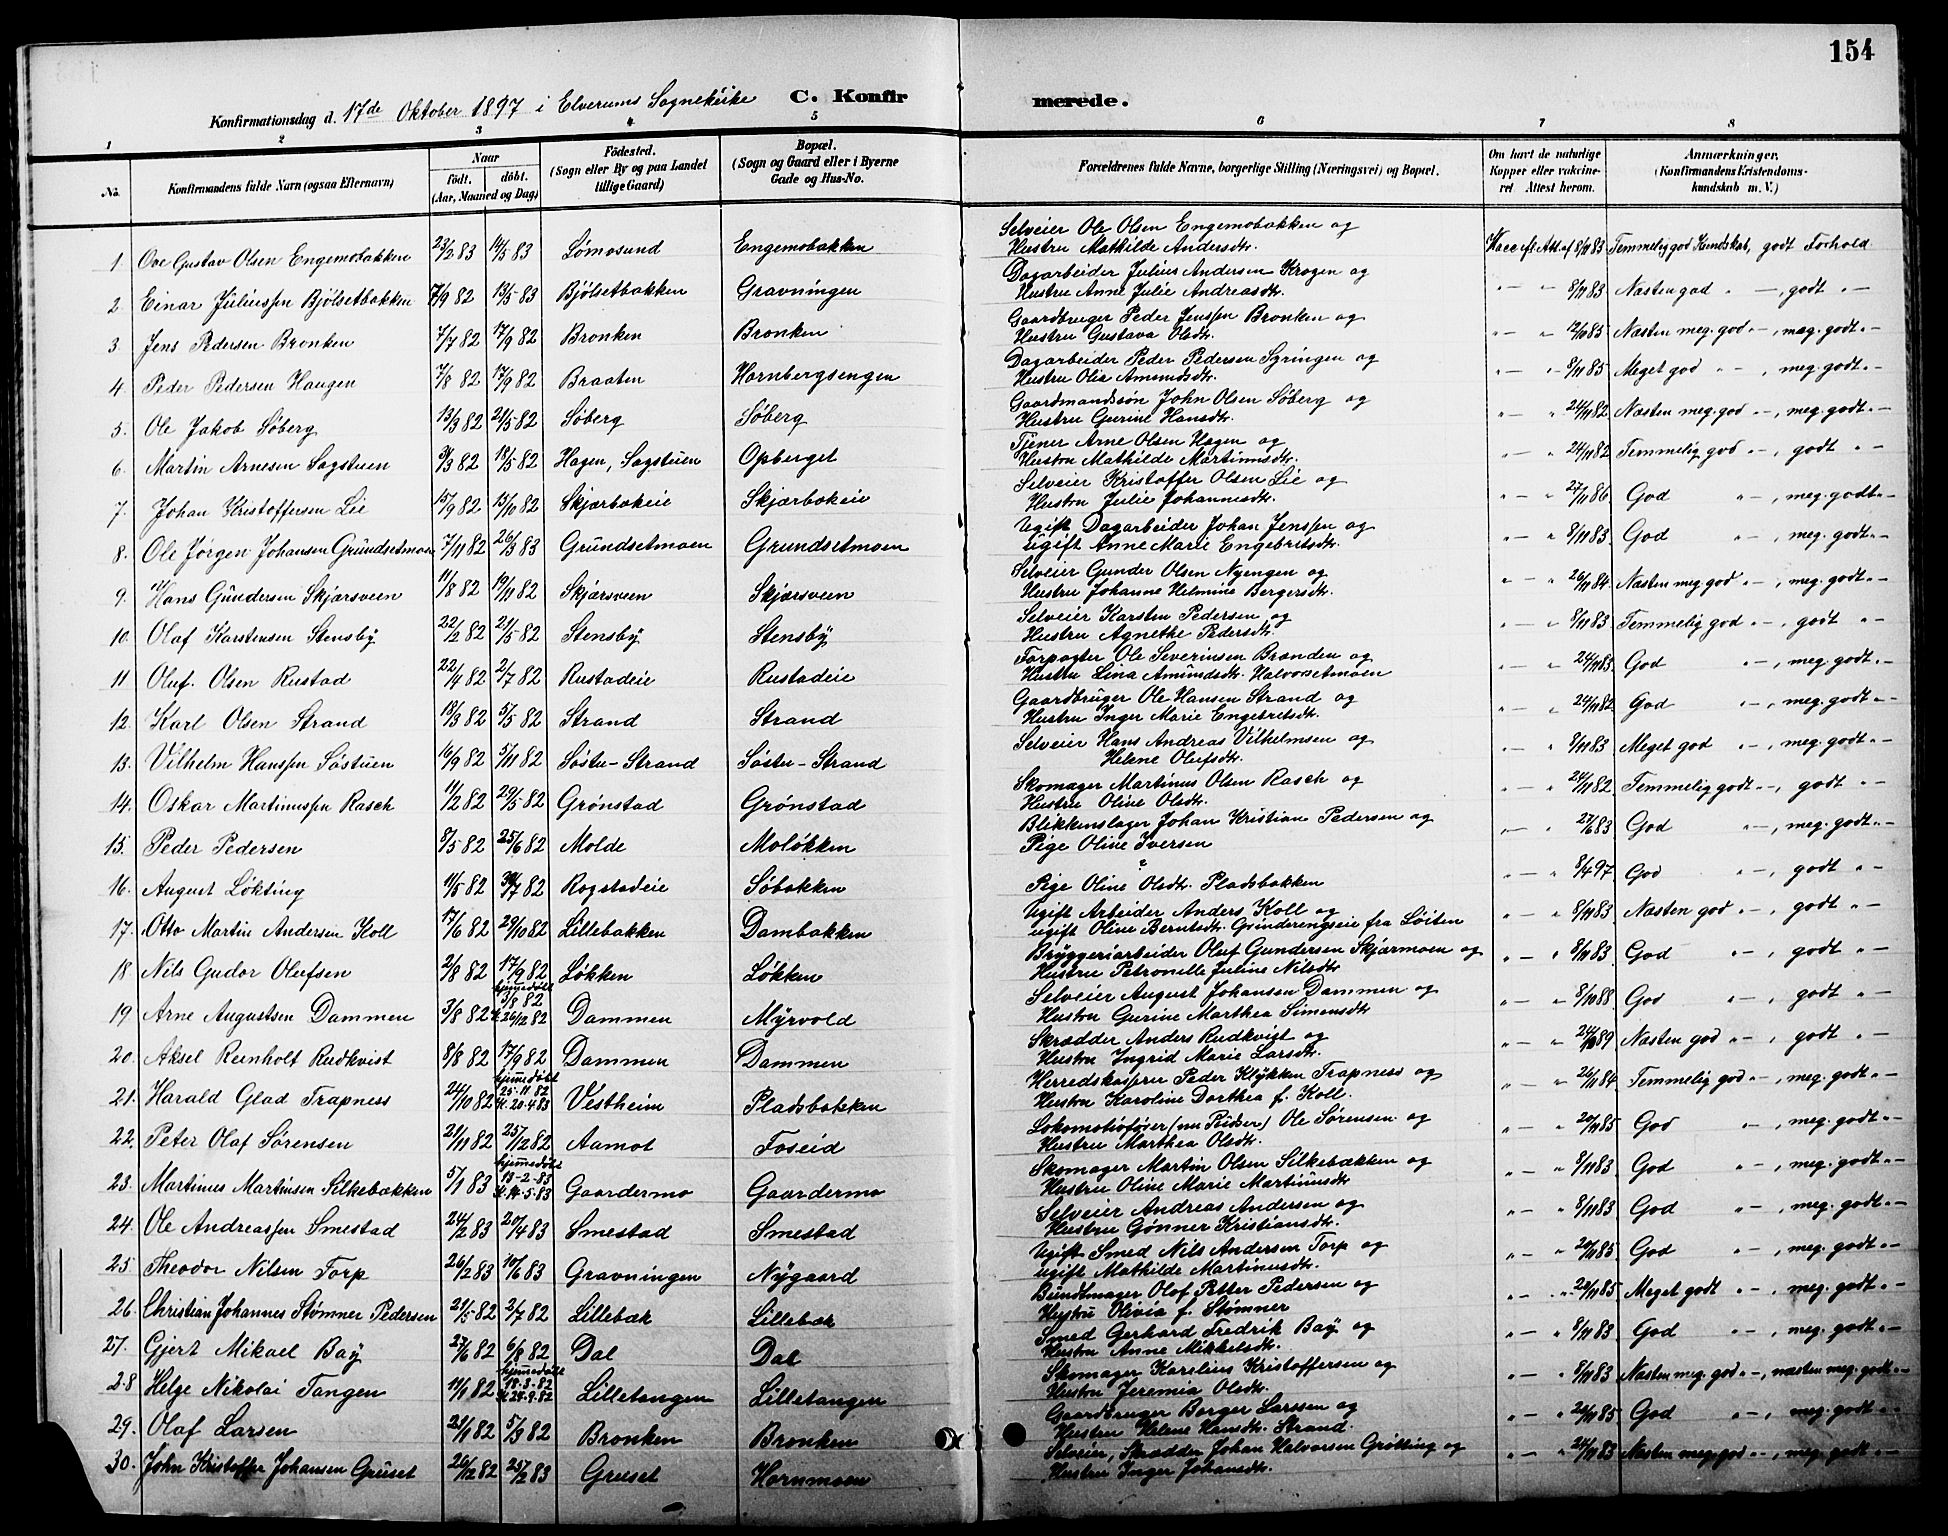 154
Konfirmationsdag d. 17de Oktober 1897 i Elverums Sognekirke C. Konfirmerede.
1 2 3 4 5 6 7 8
No. Konfirmandens fulde Navn (ogsaa Efternavn) Naar født, døbt. (Aar, Maaned og Dag) Fødested. (Sogn eller By og paa Landet tillige Gaard) Bopæl. (Sogn og Gaard eller i Byerne Gade og Hus-No. Forældrenes fulde Navne, borgerlige Stilling (Næringsvei) og Bopæl. Om havt de naturlige Kopper eller vakcineret Attest herom. Anmærkninger. (Konfirmandens Kristendomskundskab m. V.)
1. Ove Gustav Olsen Engemobakken 23/2 83 14/5 83 Lømosund Engemobakken Selveier Ole Olsen Engemobakken og Hustru Mathilde Andersdtr. Vacc efl. Att. af 8/11 83 Temmelig god Kundskab, godt Forhold
2. Einar Juliussen Bjölsetbakken 7/9 82 13/5 83 Bjölsetbakken Gravningen Dagarbeider Julius Andersen Krogen og Hustru Anne Julie Andreasdtr. " — " 8/11 83 Næsten god " —, godt " —
3. Jens Pedersen Bronken 7/7 82 17/9 82 Bronken Bronken Gaardbruger Peder Jenssen Bronken og Hustru Gustava Olsdtr. " — " 12/10 85 Næsten meg. god " —, meg. godt " —
4. Peder Pedersen Haugen 7/8 82 17/9 82 Braaten Hornbergsengen Dagarbeider Peder Pedersen Gyringen og Hustru Olia Amundsdtr. " — " 9/11 85 Meget god " —, meg. godt " —
5. Ole Jakob Søberg 13/3 82 21/5 82 Søberg Søberg Gaardmandssøn John Olsen Søberg og Hustru Gurine Hansdtr. " — " 24/11 82 Næsten meg. god " —, meg. godt " —
6. Martin Arnesen Sagstuen 31/3 82 18/5 82 Hagen, Sagstuen Opberget Tjener Arne Olsen Hagen og Hustru Mathilde Martinusdtr. " — " 24/11 82 Temmelig god " —, godt " —
7. Johan Kristoffersen Lie 15/9 82 15/10 82 Skjærbakeie Skjærbakeie Selveier Kristoffer Olsen Lie og Hustru Julie Johannesdtr. " — " 27/11 86 God " —, meg. godt " —
8. Ole Jørgen Johansen Grundsetmoen 7/11 82 26/3 83 Grundsetmoen Grundsetmoen Ugift Dagarbeider Johan Jenssen og ugift Anne Marie Engebretsdtr. " — " 8/11 83 God " —, meg. godt " —
9. Hans Gundersen Skjærsveen 11/8 82 19/11 82 Skjærsveen Skjærsveen Selveier Gunder Olsen Nyengen og Hustru Johanne Helmine Bergersdtr. " — " 26/11 84 Næsten meg. god " —, meg. godt " —
10. Olaf Karstensen Stensby 22/2 82 21/5 82 Stensby Stensby Selveier Karsten Pedersen og Hustru Agnethe Pedersdtr. " — " 8/11 83 Temmelig god " —, godt " —
11 Oluf Olsen Rustad 22/4 82 2/7 82 Rustadeie Rustadeie Forpagter Ole Severinsen Brænden og Hustru Lina Amundsdtr. Halvorsetmoen " — " 24/11 83 God " —, meg. godt " —
12. Karl Olsen Strand 18/3 82 5/5 82 Strand Strand Gaardbruger Ole Hansen Strand og Hustru Inger Marie Engebretsdtr. " — " 24/11 82 God " —, meg. godt " —
13. Vilhelm Hanssen Søstuen 16/9 82 5/11 82 Søstu-Strand Søstu-Strand Selveier Hans Andreas Vilhelmsen og Helene Olufsdtr. " — 8/11 83 Meget god " —, meg. godt " —
14. Oskar Martinussen Rasch 11/2 82 29/5 82 Grønstad Grønstad Skomager Martinus Olsen Rasch og Hustru Oline Olsdtr. " — " 24/11 82 Temmelig godt " —, godt " —
15. Peder Pedersen 8/5 82 25/6 82 Molde Moløkken Blikkenslager Johan Kristian Pedersen og Pige Oline Iversen " — " 27/6 83 God " —, meg. godt " —
16. August Løkting 11/5 82 30/7 82 Rogstadeie Søbakken Pige Oline Olsdtr. Pladsbakken " — " 8/4 97 God " —, godt " —
17. Otto Martin Andersen Koll 17/6 82 29/10 82 Lillebakken Dambakken Ugift Arbeider Anders Koll og ugift Oline Berntsdtr. Grinderengseie fra Løiten " — " 8/11 83 Næsten god " —, godt " —
18 Nils Gudor Olufsen 2/8 82 17/9 82 Løkken Løkken Bryggeriarbeider Oluf Gundersen Skjærmoen og Hustru Petronelle Juline Nilsdtr. " — " 8/11 83 God " —, godt " —
19 Arne Augustsen Dammen 3/8 82 hjemmedøbt 3/8 82 K. 26/12 82 Dammen Myrvold Selveier August Johansen Dammen og Hustru Gurine Marthea Simensdtr. " — " 8/10 88 God " —, godt " —
20. Aksel Reinholt Rudkvist 8/8 82 17/9 82 Dammen Dammen Skrædder Anders Rudkvist og Hustru Ingrid Marie Larsdtr. " — " 24/10 89 Næsten god " —, godt " —
21. Harald Glad Trapness 24/10 82 hjemmedøbt 25.11 82 K. 20.4.83 Vestheim Pladsbakken Herredskasserer Peder Klykken Trapness og Hustru Karoline Dorthea f. Koll. " — " 26/11 84 Temmelig god " —, meg. godt " —
22. Peter Olaf Sørensen 21/11 82 25/12 82 Aamot Foseid Lokomotivfører (nu Pudser) Ole Sørensen og Hustru Marthea Olsdtr. " — " 20/11 85 God " —, meg. godt " —
23. Martinus Martinsen Silkebækken 5/1 83 hjemmedøbt 13-2-83 K. 14.5.83 Gaardermo Gaardermo Skomager Martin Olsen Silkebækken og Hustru Oline Marie Martinusdtr " — " 8/11 83 God " —, meg. godt " —
24. Ole Andreassen Smestad 24/2 83 20/4 83 Smestad Smestad Selveier Andreas Andersen og Hustru Gønner Kristiansdtr. " — " 8/11 83 God " —, meg. godt " —
25. Theodor Nilsen Torp 26/2 83 10/6 83 Gravningen Nygaard Ugift Smed Nils Andersen Torp og ugift Mathilde Martinusdtr. " — " 20/11 85 God " —, meg. godt " —
26. Christian Johannes Stømner Pedersen 21/5 82 2/7 82 Lillebæk Lillebæk Bundtmager Olof Petter Pedersen og Hustru Olivia f. Stømner " — " 20/11 85 Meget godt " —, meg. godt " —
27. Gjert Mikael Bay 27/6 82 6/8 82 Dal Dal Smed Gerhard Fredrik Bay og Hustru Anne Mikkelsdtr. " — " 8/11 83 God " —, meg. godt " —
28 Helge Nikolai Tangen 11/1 82 hjemmedøbt 19.3.82 K. 24.9.82 Lilletangen Lilletangen Skomager Karelius Kristoffersen og Hustru Jeremia Olsdtr. " — " 8/11 83 Næsten meg. god " —, næsten meg. godt " —
29. Olaf Larsen 21/1 82 5/3 82 Bronken Bronken Gaardbruger Berger Larssen og Hustru Helene Hansdtr. Strand. " — " 20/11 85 God " —, meg. godt " —
30. John Kristoffer Johansen Gruset 26/12 82 25/2 83 Gruset Hornmoen Selveier, Skrædder Johan Halvorsen Grøtting og Hustru Inger Johansdtr. " — " 24/11 83 Næsten meg. god " —, meg. godt " —